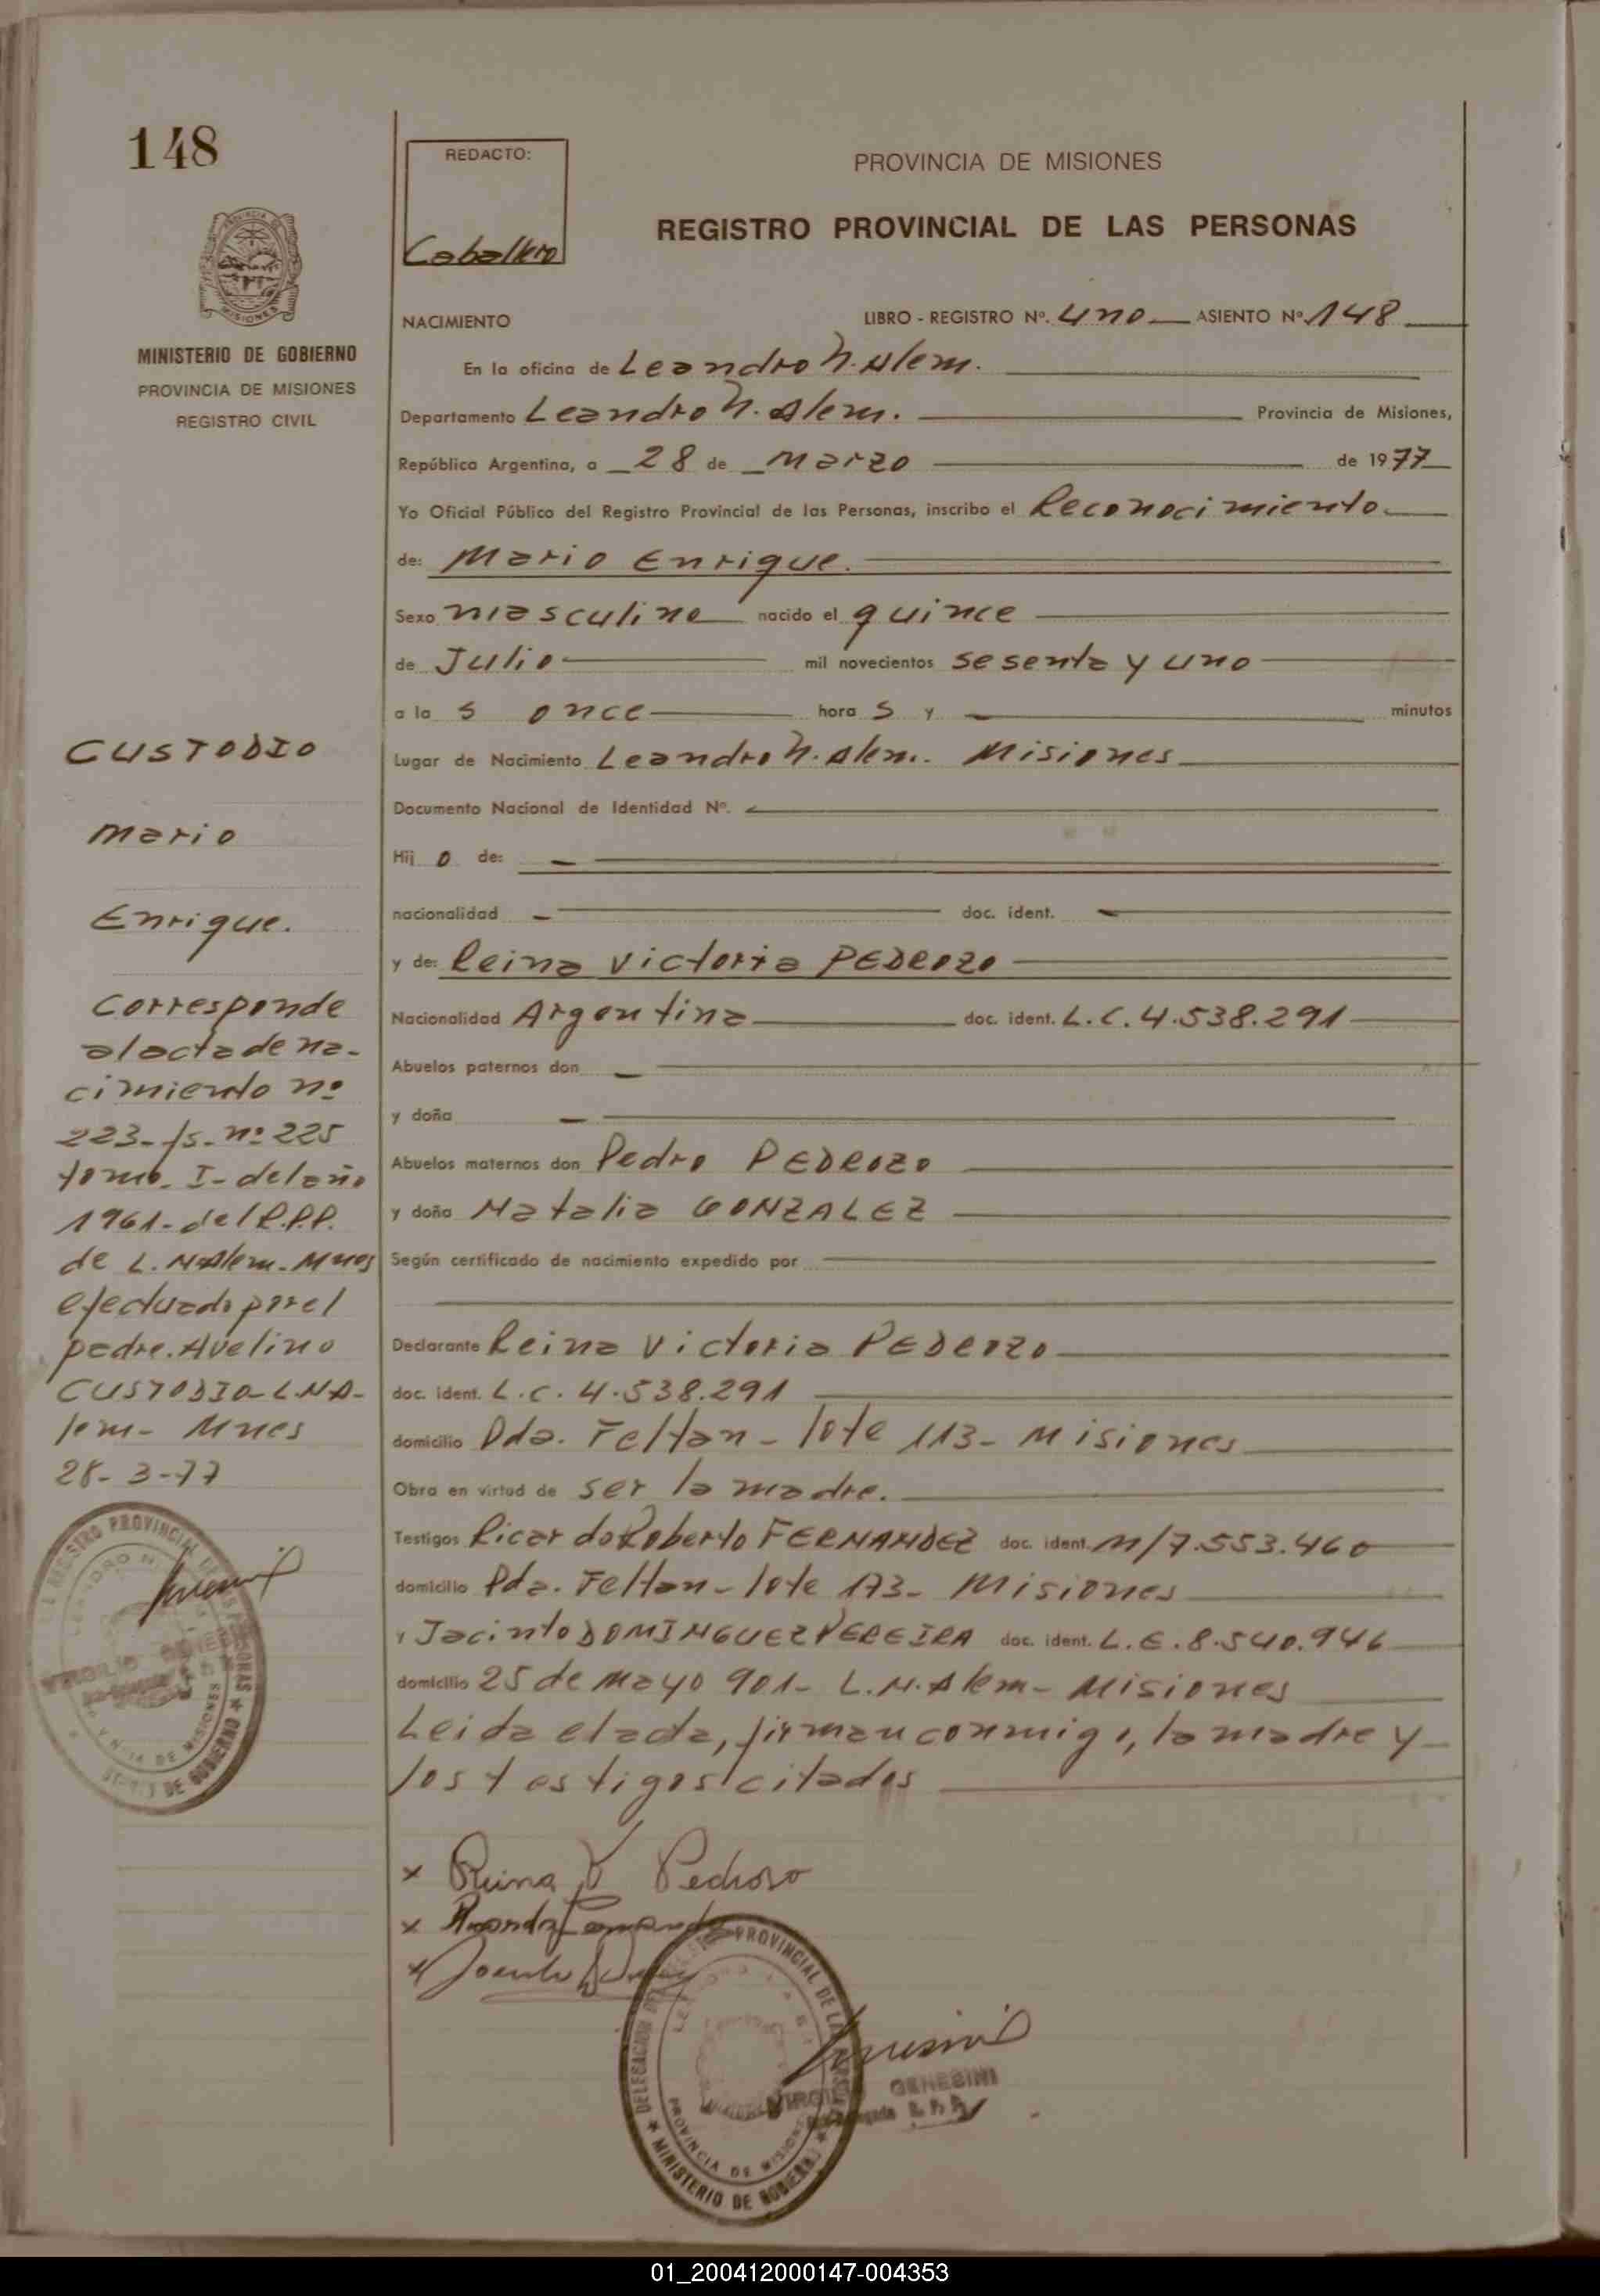 148
MINISTERIO DE GOBIERNO
PROVINCIA DE MISIONES
REGISTRO CIVIL
CUSTODIO
Mario
Enrique.
Corresponde
al acta de na-
cimiento nº
223-fs-nº 225
tomo-I-del año
1961-del R.P.P.
de L. N. Alem-Mnes
efectuado por el
padre. Avelino
CUSTODIO-L.N.A-
lem- Mnes
28-3-77
REDACTO:
Caballero
PROVINCIA DE MISIONES
REGISTRO PROVINCIAL DE LAS PERSONAS
NACIMIENTO LIBRO - REGISTRO Nº. uno ASIENTO Nº. 148
En la oficina de Leandro N. Alem.
Departamento Leandro N. Alem. Provincia de Misiones,
República Argentina, a 28 de Marzo de 1977
Yo Oficial Público del Registro Provincial de las Personas, inscribo el Reconocimiento
de: Mario Enrique.
Sexo masculino nacido el quince
de Julio mil novecientos sesenta y uno
a las once horas y - minutos
Lugar de Nacimiento Leandro N. Alem. Misiones
Documento Nacional de Identidad Nº.
Hijo de: -
nacionalidad - doc. ident. -
y de: Reina Victoria PEDROZO
Nacionalidad Argentina doc. ident. L.C. 4.538.291
Abuelos paternos don -
y doña -
Abuelos maternos don Pedro PEDROZO
y doña Natalia GONZALEZ
Según certificado de nacimiento expedido por
Declarante Reina Victoria PEDROZO
doc. ident. L.C. 4.538.291
domicilio Pda. Feltan - lote 113- Misiones
Obra en virtud de ser la madre.
Testigos Ricardo Roberto FERNANDEZ doc. ident. M/7.553.460
domicilio Pda. Feltan - lote 173- Misiones
y Jacinto DOMINGUEZ PEREIRA doc. ident. L.E. 8.540.946
domicilio 25 de Mayo 901- L.N. Alem- Misiones
Leida el acta, firman conmigo, la madre y
los testigos citados
x Reina V Pedroso
REGISTRO PROVINCIAL DE LAS PERSONAS
MINISTERIO DE GOBIERNO
PROVINCIA DE MISIONES
GENESINI
R. P. P.
01_200412000147-004353